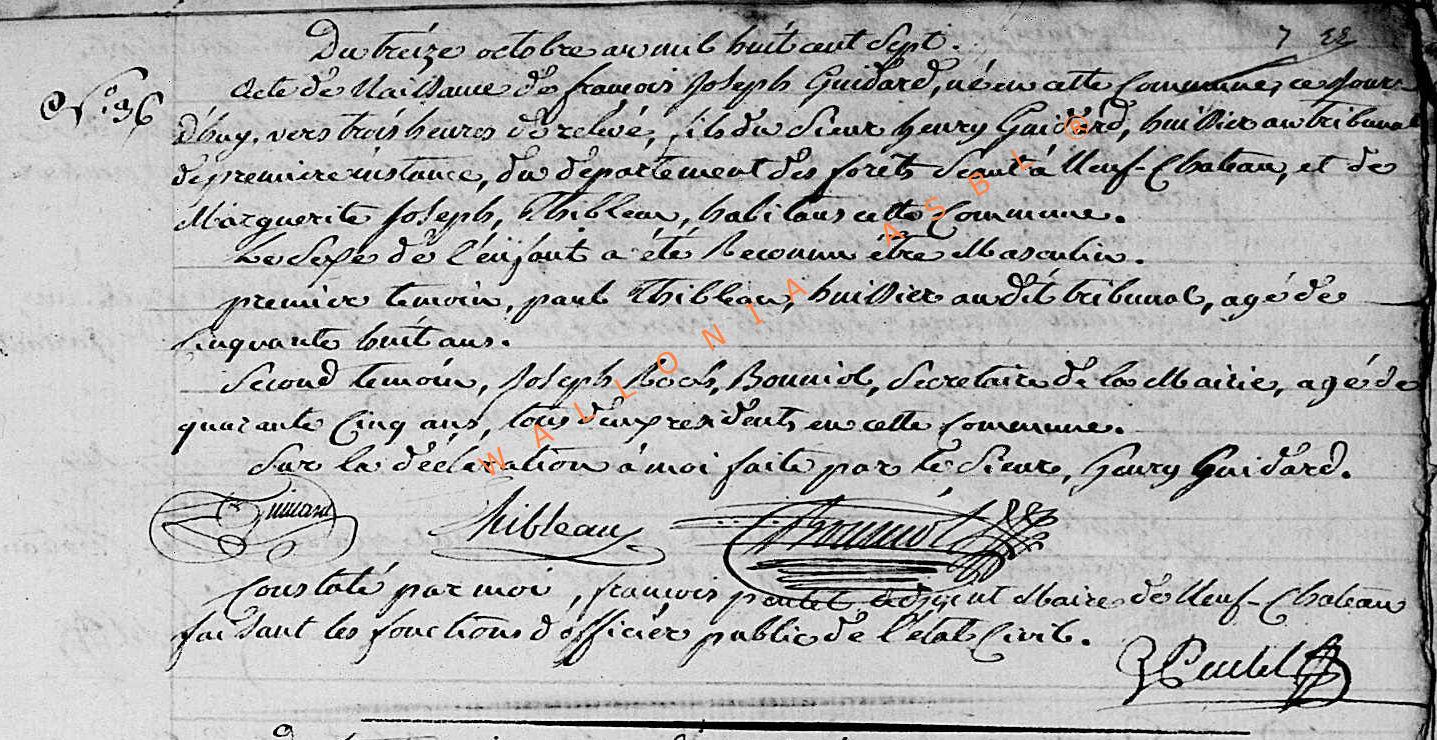 Du treize octobre an mil huit cent Sept.
7
N.° 36
Acte de Naissance de françois Joseph Guidard, né en cette Commune, ce jour
d'huy, vers trois heures de relevé, fils du Sieur henry Guidard, huissier au tribunal
de premiere instance, du departement des forêts Séant à Neuf-Chateau, et de
Marguerite Joseph, Thibleau, habitans cette Commune.
Le Sexe de l'enfant a été Reconnu être Masculin.
premier temoin, paul Thibleau, huissier au dit tribunal, agé de
Cinquante huit ans.
Second temoin, Joseph Roch, Bonniol, Secretaire de la Mairie, agé de
quarante Cinq ans, tous deux residents en cette Commune.
Sur la déclaration à moi faite par le Sieur, henry Guidard.
Thibleau Bonniol
Constaté par moi, françois poulet Maire de Neuf-Chateau
faisant les fonctions d'officier public de l'état Civil.
WALLONIA ASBL ©